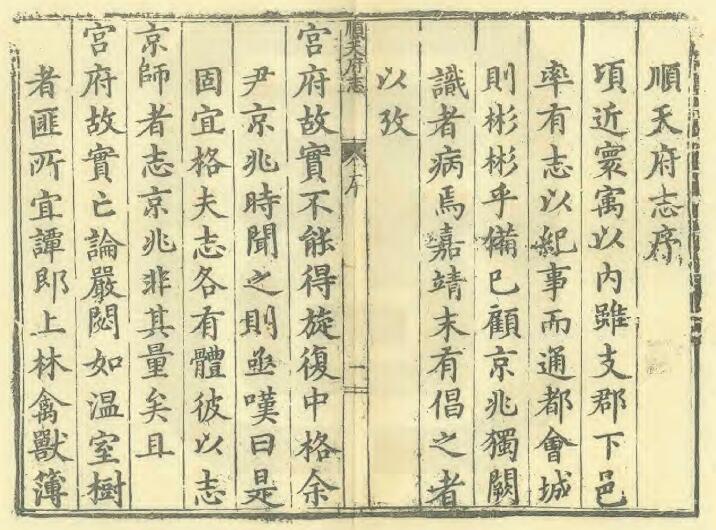 順天府志序
頃近寰㝢以内雖支郡下邑
率有志以紀事而通都會城
則彬彬乎備已顧京兆獨闕
識者病焉嘉靖末有倡之者
以攷
順天府志
序
一
宮府故實不能得旋復中格余
尹京兆時聞之則亟嘆曰是
固宜格夫志各有體彼以志
京師者志京兆非其量矣且
宮府故實亡論嚴閟如溫室樹
者匪所宜譚即上林禽獸簿